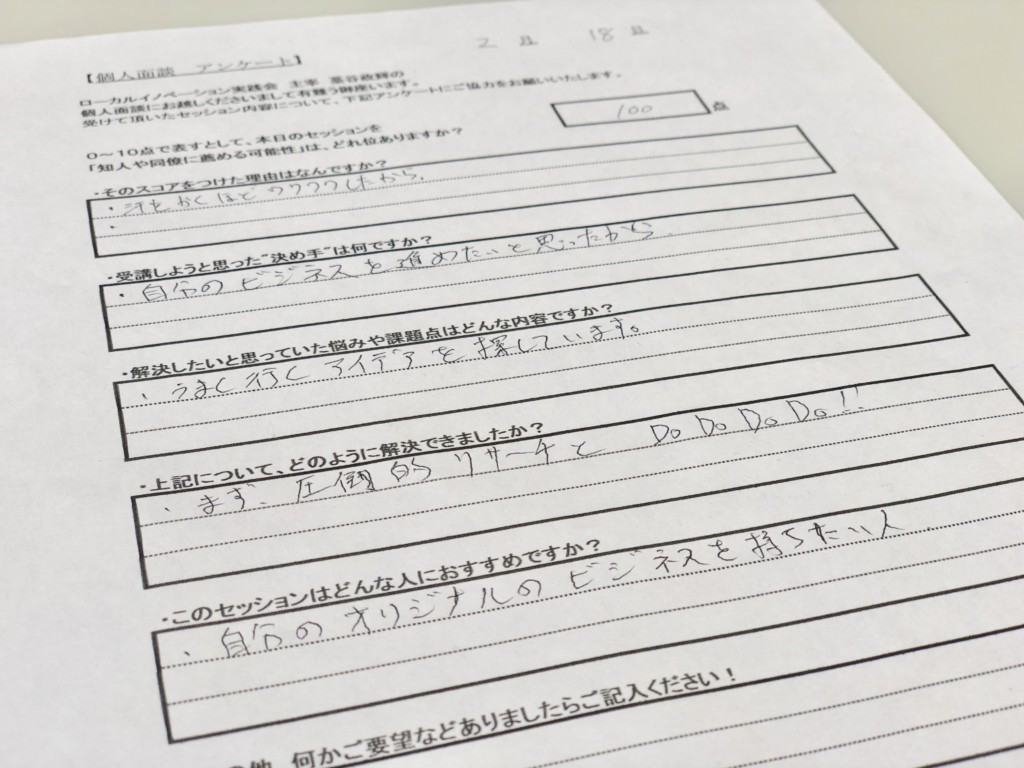 2 月 18 日
【個人面談 アンケート】
ローカルイノベーション実践会 主宰 墓谷政輝の
個人面談にお越しくださいまして有難う御座います。
受けて頂いたセッション内容について、下記アンケートにご協力をお願いいたします。
0～10点で表すとして、本日のセッションを
「知人や同僚に薦める可能性」は、どれ位ありますか？
100 点
・そのスコアをつけた理由はなんですか？
・汗をかくほどワクワクしたから.
・
・受講しようと思った“決め手”は何ですか？
・自分のビジネスを進めたいと思ったから
・解決したいと思っていた悩みや課題点はどんな内容ですか？
、うまく行くアイデアを探しています。
・上記について、どのように解決できましたか？
、まず、圧倒的リサーチと Do Do Do Do!!
・このセッションはどんな人におすすめですか？
、自分のオリジナルのビジネスを持ちたい人
の他、何かご要望などありましたらご記入ください！